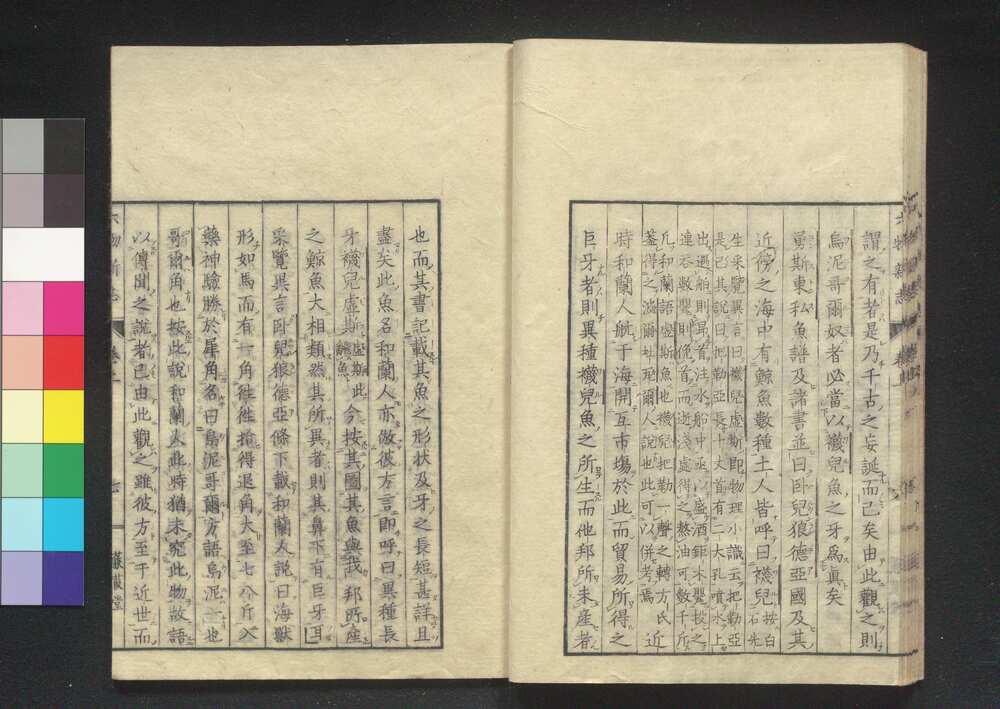 謂之有者是乃千古之妄誕而已矣由此觀之則
烏泥哥爾奴者必當以襪兒魚之牙爲眞矣
勇斯東私魚譜及諸書並曰臥兒狼德亞國及其
近傍之海中有鯨魚數種土人皆呼曰襪兒按白石先
生采覽異言曰襪兒虛斯即物理小識云把勒亞
是已其說曰把勒亞長十丈首有二大孔噴水上
出遇舶則昂首注水船中亟以盛酒鉅木甖投之
連呑數甖則俛首而逝淺處得之熬油可數千斤
凡和蘭語虛斯魚也襪兒把勒一聲之轉方氏
蓋得之人說也此可以併考焉近
時和蘭人航于海開互市塲於此而貿易所得之
巨牙者則異種襪兒魚之所生而他邦所未產者
也而其書記載其魚之形狀及牙之長短甚詳且
盡矣此魚名和蘭人亦倣彼方言即呼曰異種長
牙襪兒虛斯虛斯此翻魚今按其圖其魚與我邦所產
之鯨魚大相類然其所異者則其鼻下有巨牙耳
采覽異言臥兒狼德亞條下載和蘭人說曰海獸
形如馬而有一角徃徃拾得退角大至七八斤入
藥神驗勝於犀角名曰烏泥哥爾方語烏泥一也
哥爾角也按此說和蘭人此時猶未究此物故語
以傳聞之說者已由此觀之雖彼方至于近世而
六物新志
卷上
七